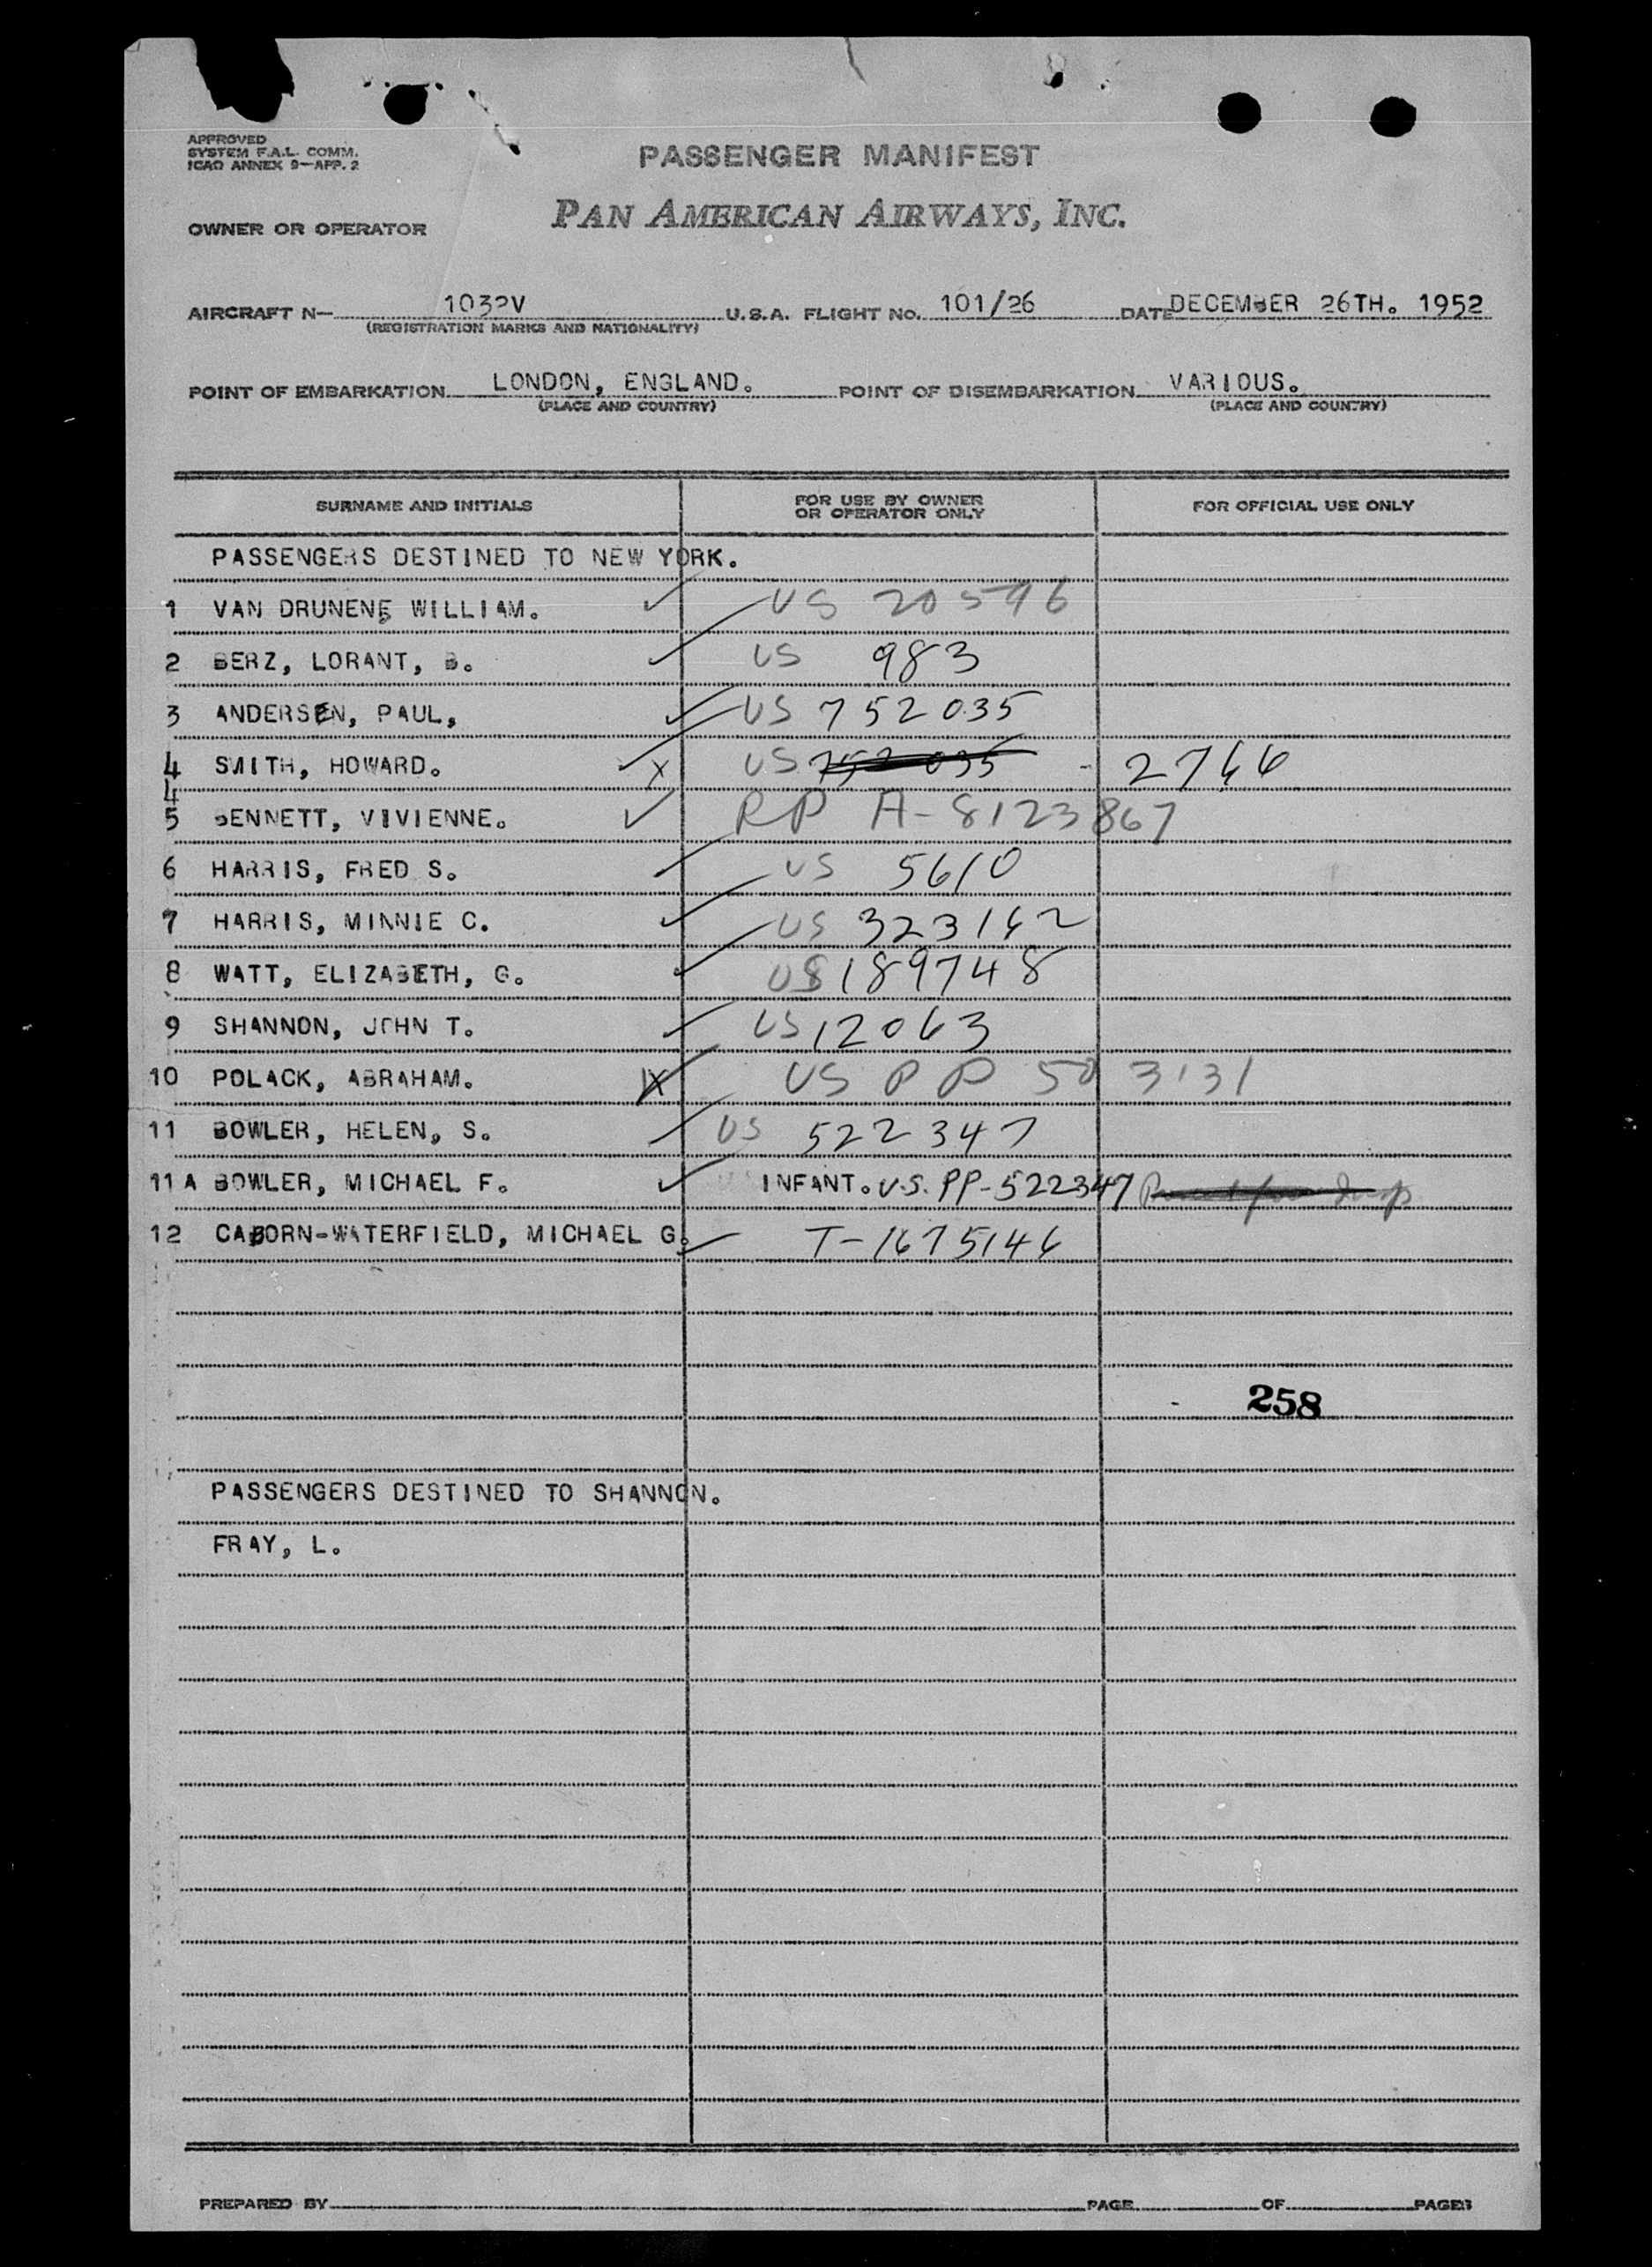 APPROVED
SYSTEM F.A.L. COMM.
ICAO ANNEX 9—APP. 2
PASSENGER MANIFEST
OWNER OR OPERATOR PAN AMERICAN AIRWAYS, INC.
AIRCRAFT N— 1032V U.S.A. FLIGHT NO. 101/26 DATE DECEMBER 26TH. 1952
(REGISTRATION MARKS AND NATIONALITY)
POINT OF EMBARKATION LONDON, ENGLAND. POINT OF DISEMBARKATION VARIOUS.
(PLACE AND COUNTRY) (PLACE AND COUNTRY)
SURNAME AND INITIALS FOR USE BY OWNER OR OPERATOR ONLY FOR OFFICIAL USE ONLY
PASSENGERS DESTINED TO NEW YORK.
1 VAN DRUNENE WILLIAM. US 20596
2 BERZ, LORANT, B. US 983
3 ANDERSEN, PAUL, US 752035
4 SMITH, HOWARD. X US 752035 - 2766
4
5 BENNETT, VIVIENNE. RP A-8123867
6 HARRIS, FRED S. US 5610
7 HARRIS, MINNIE C. US 323162
8 WATT, ELIZABETH, G. US 189748
9 SHANNON, JOHN T. US 12063
10 POLACK, ABRAHAM. X US PP 50 3131
11 BOWLER, HELEN, S. US 522347
11 A BOWLER, MICHAEL F. INFANT. U.S. PP-522347
12 CABORN-WATERFIELD, MICHAEL G. T-1675146
258
PASSENGERS DESTINED TO SHANNON.
FRAY, L.
PREPARED BY PAGE OF PAGES